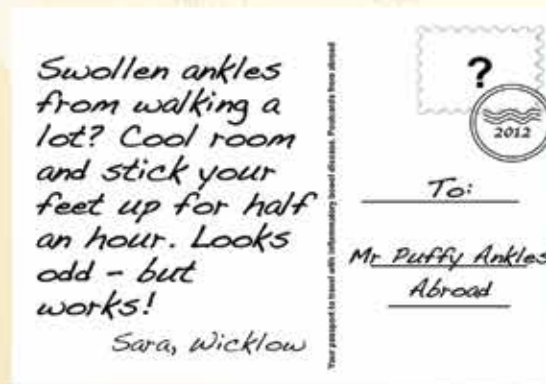 Swollen ankles
from walking a
lot? Cool room
and stick your
feet up for half
an hour. Looks
odd - but
works!
Sara, Wicklow
Your passport to travel with inflammatory bowel disease. Postcards from abroad
?
2012
To:
Mr Puffy Ankles
Abroad